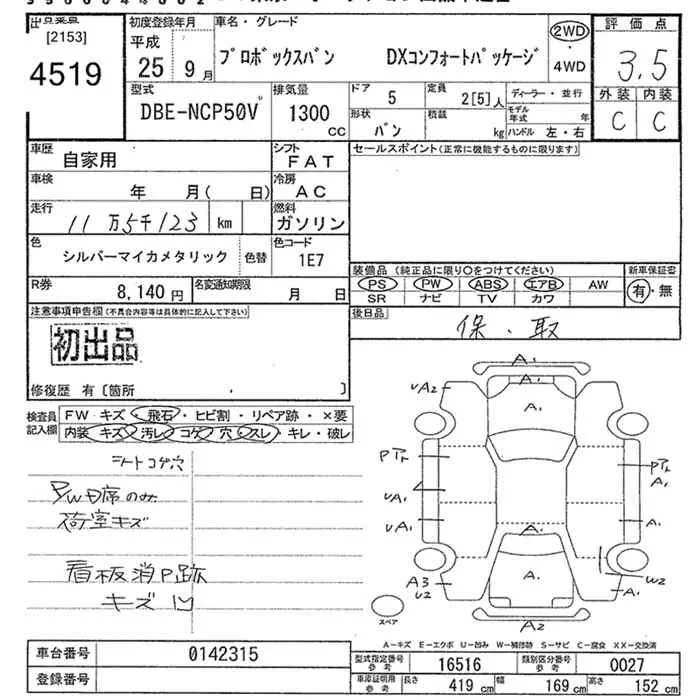 出品票番
[2153]
4519
初度登録年月
平成
25 9月
車名・グレード
プロボックスバン DXコンフォートパッケージ
2WD
・
4WD
評価点
3.5
型式
DBE-NCP50V
排気量
1300
CC
ドア
5
定員
2[5]人
ディーラー・並行
形状
バン
積載
kg
モデル年式 年
ハンドル 左・右
外装 内装
C C
車歴
自家用
シフト
FAT
車検
年 月( 日)
冷房
AC
走行
11万5千123 km
燃料
ガソリン
色
シルバーマイカメタリック
色替
色コード
1E7
R券
8,140円
名変通知期限
月 日
セールスポイント(正常に機能するものに限ります)
装備品 (純正品に限り○をつけてください)
新車保証書
PS PW ABS エアB AW
SR ナビ TV カワ
有・無
後日品
保・取
注意事項申告欄(不具合内容等は具体的に記入して下さい)
初出品
修復歴 有〔箇所 〕
検査員
記入欄
FW キズ・飛石・ヒビ割・リペア跡・×要
内装 キズ 汚レ コゲ 穴 スレ・キレ・破レ
シートコゲ穴
PW D席のみ
荷室キズ
看板消P跡
キズ凹
A1
UA2
A1
A1
Pアト
Pアト
A1
UA1
UA1
A1
A1
A1
A3
U2
W2
A1
A2
スペア
A-キズ E-エクボ U-凹み W-補修跡 S-サビ C-腐食 XX-交換済
車台番号
0142315
登録番号
型式指定番号
参考
16516
類別区分番号
参考
0027
車庫証明用
参考
長さ 419cm 幅 169cm 高さ 152cm